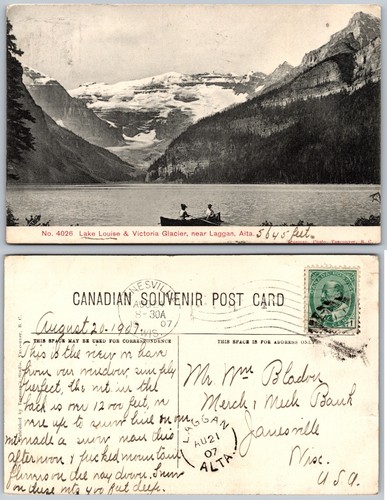 No. 4026 Lake Louise & Victoria Glacier, near Laggan, Alta. 5645 feet.
CANADIAN SOUVENIR POST CARD
August 20-1907.
THIS SPACE MAY BE USED FOR CORRESPONDENCE
THIS SPACE IS FOR ADDRESS ONLY
This is the view we have
from our window simply
perfect, the mt in the
back is over 12000 feet,
up to snow line
made a snow man this
afternoon I picked mountain
flowers
400 feet deep.
Mr Wm Bladon
Merch & Mech Bank
Janesville
Wisc.
U.S.A.
JANESVILLE
8-30A
07
WIS.
LAGGAN
AU 21
07
ALTA.